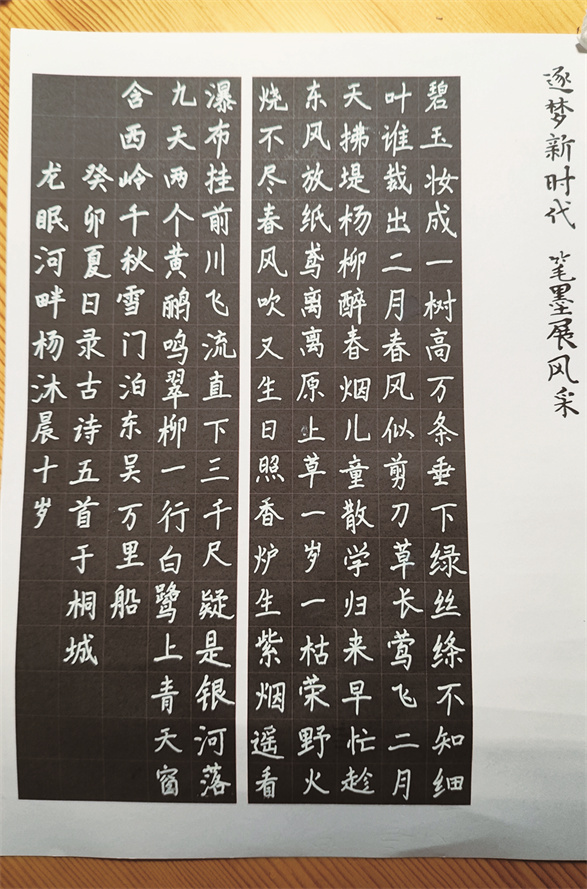 逐梦新时代 笔墨展风采
碧玉妆成一树高万条垂下绿丝绦不知细
叶谁裁出二月春风似剪刀草长莺飞二月
天拂堤杨柳醉春烟儿童散学归来早忙趁
东风放纸鸢离离原上草一岁一枯荣野火
烧不尽春风吹又生日照香炉生紫烟遥看
瀑布挂前川飞流直下三千尺疑是银河落
九天两个黄鹂鸣翠柳一行白鹭上青天窗
含西岭千秋雪门泊东吴万里船
癸卯夏日录古诗五首于桐城
龙眠河畔杨沐晨十岁